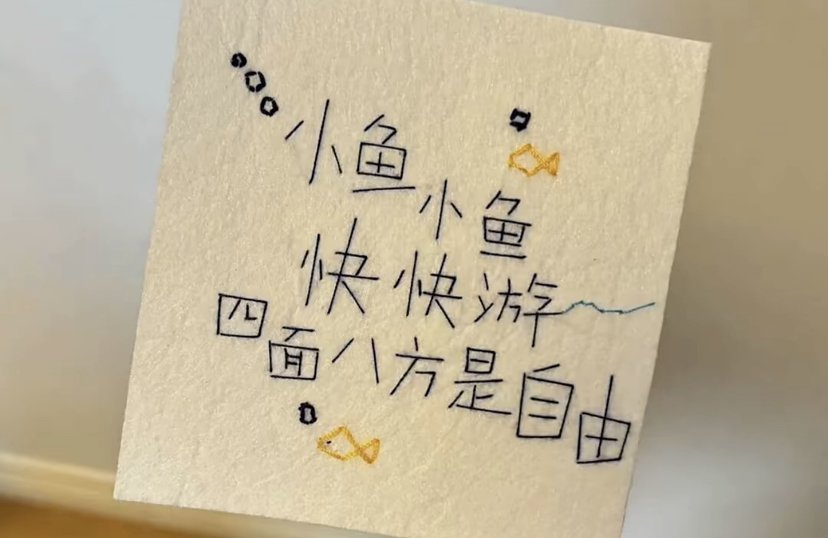 小鱼
小鱼
快快游
四面八方是自由